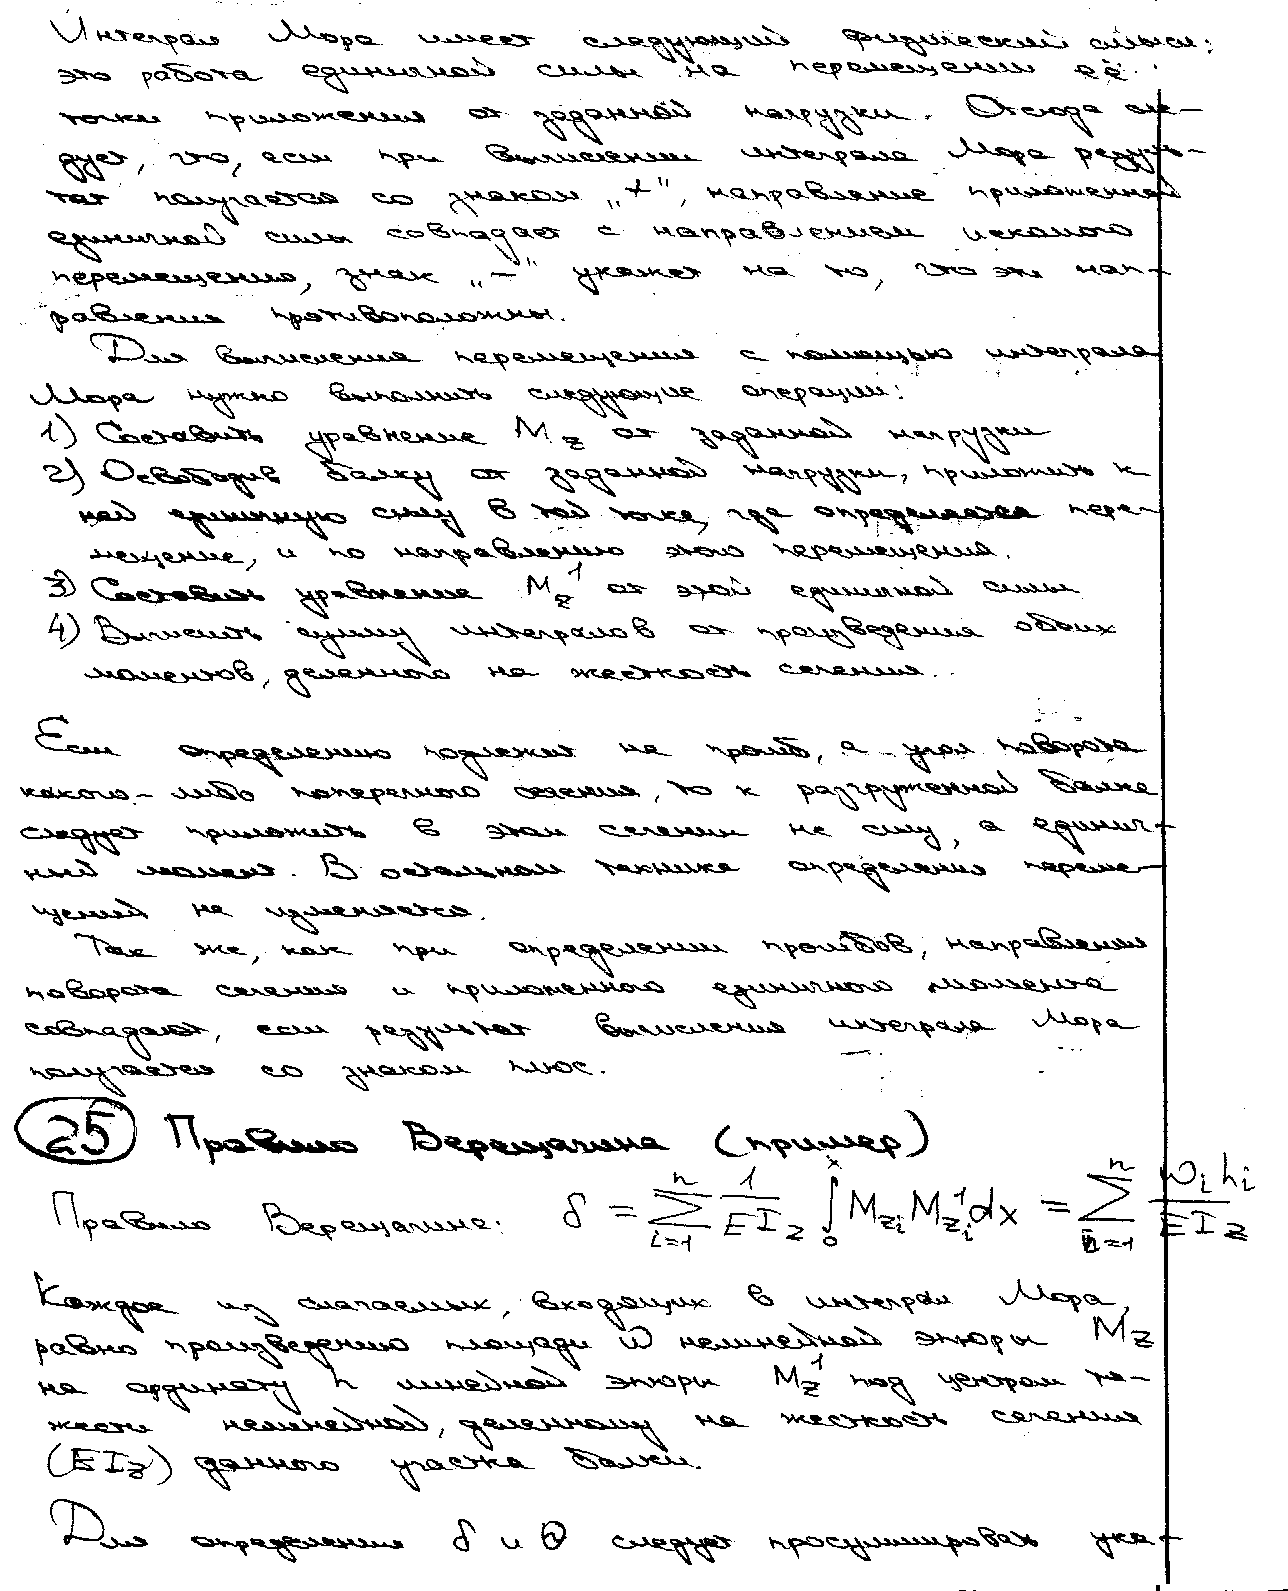 Интеграл Мора имеет следующий физический смысл:
это работа единичной силы на перемещении её
точки приложения от заданной нагрузки. Отсюда сле-
дует, что, если при вычислении интеграла Мора резуль-
тат получается со знаком „+", направление приложенной
единичной силы совпадает с направлением искомого
перемещения, знак „–" укажет на то, что эти нап-
равления противоположны.
Для вычисления перемещения с помощью интеграла
Мора нужно выполнить следующие операции:
1) Составить уравнение Mz от заданной нагрузки
2) Освободив балку от заданной нагрузки, приложить к
ней единичную силу в той точке, где определяется пере-
мещение, и по направлению этого перемещения.
3) Составить уравнение Mz¹ от этой единичной силы
4) Вычислить сумму интегралов от произведения обоих
моментов, деленного на жесткость сечения.
Если определению подлежит не прогиб, а угол поворота
какого-либо поперечного сечения, то к разгруженной балке
следует приложить в этом сечении не силу, а единич-
ный момент. В остальном техника определения переме-
щений не изменяется.
Так же, как при определении прогибов, направления
поворота сечения и приложенного единичного момента
совпадают, если результат вычисления интеграла Мора
получается со знаком плюс.
25 Правило Верещагина (пример)
Правило Верещагина: δ = ∑ⁿᵢ₌₁ 1/EIz ∫₀ˣ Mzi Mzi¹ dx = ∑ⁿₙ₌₁ ωi hi / EIz
Каждое из слагаемых, входящих в интеграл Мора,
равно произведению площади ω нелинейной эпюры Mz
на ординату h линейной эпюры Mz¹ под центром тя-
жести нелинейной, деленному на жесткость сечения
(EIz) данного участка балки.
Для определения δ и θ следует просуммировать ука-